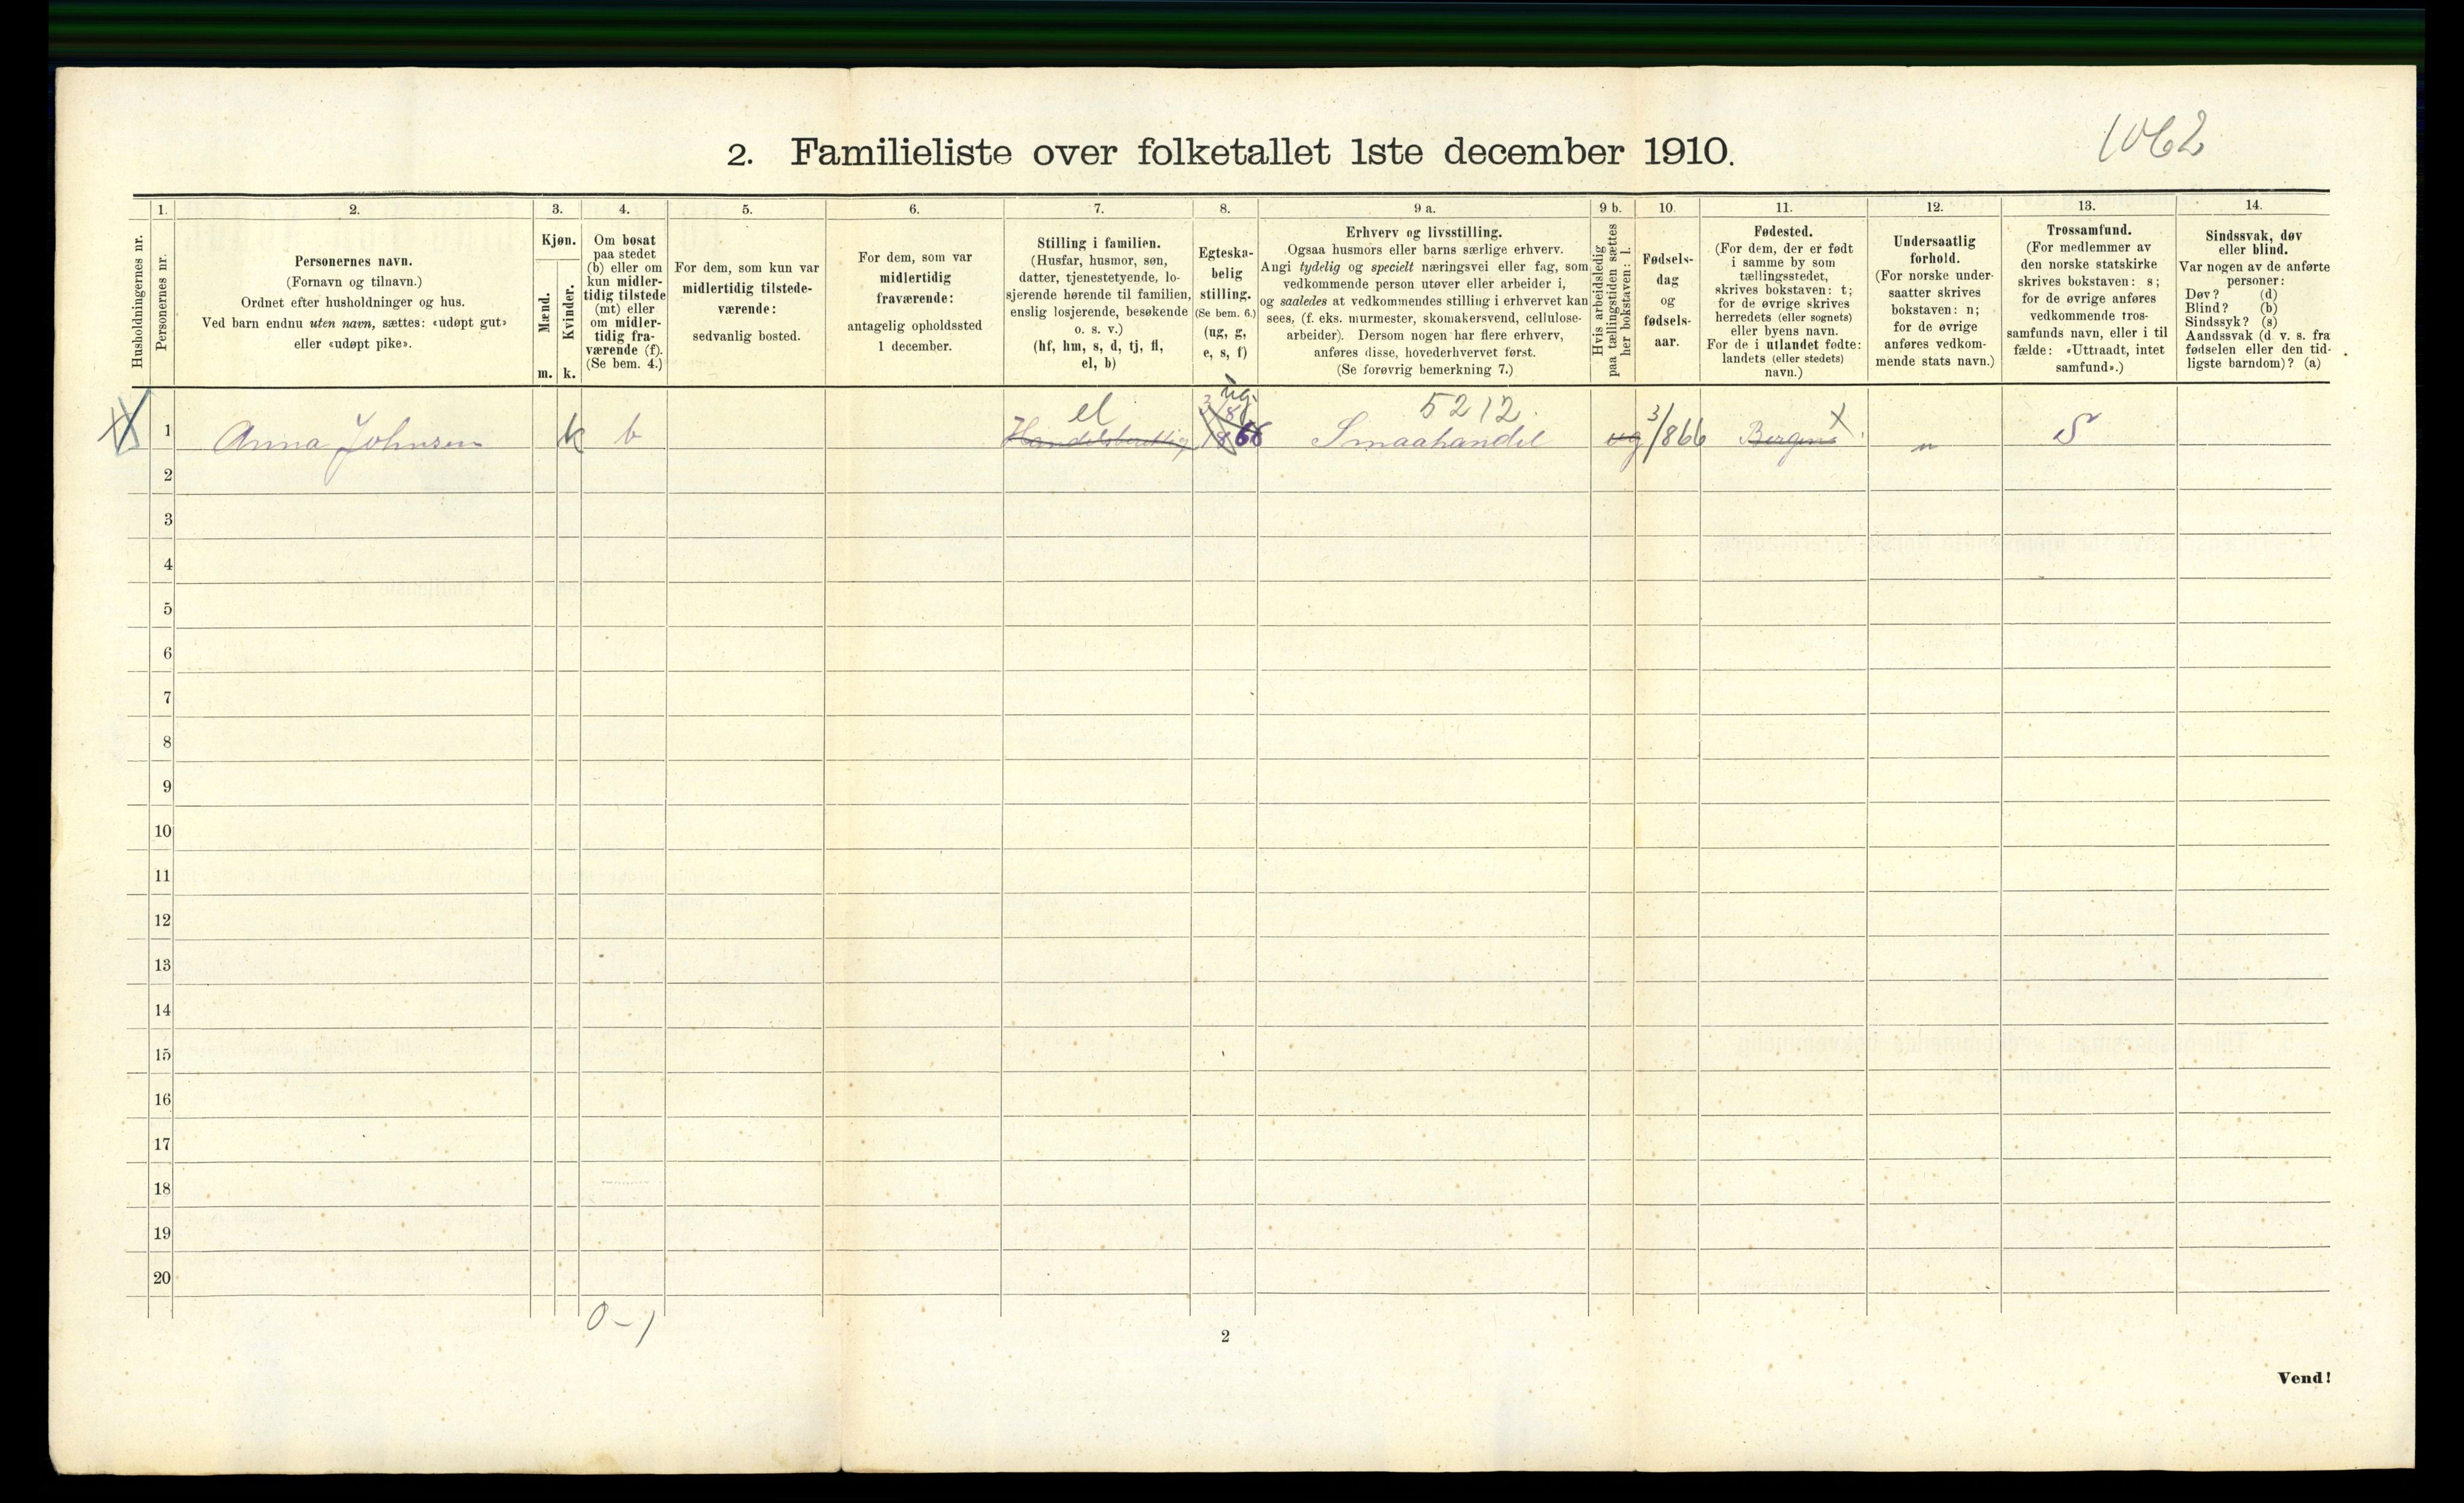 1062
2. Familieliste over folketallet 1ste december 1910.
Husholdningernes nr.
1.
Personernes nr.
2.
Personernes navn.
(Fornavn og tilnavn.)
Ordnet efter husholdninger og hus.
Ved barn endnu uten navn, sættes: «udøpt gut»
eller «udøpt pike».
3.
Kjøn.
Mænd.
Kvinder.
m. k.
4.
Om bosat
paa stedet
(b) eller om
kun midler-
tidig tilstede
(mt) eller
om midler-
tidig fra-
værende (f).
(Se bem. 4.)
5.
For dem, som kun var
midlertidig tilstede-
værende:
sedvanlig bosted.
6.
For dem, som var
midlertidig
fraværende:
antagelig opholdssted
1 december.
7.
Stilling i familien.
(Husfar, husmor, søn,
datter, tjenestetyende, lo-
sjerende hørende til familien,
enslig losjerende, besøkende
o. s. v.)
(hf, hm, s, d, tj, fl,
el, b)
8.
Egteska-
belig
stilling.
(Se bem. 6.)
(ug, g,
e, s, f)
9 a.
Erhverv og livsstilling.
Ogsaa husmors eller barns særlige erhverv.
Angi tydelig og specielt næringsvei eller fag, som
vedkommende person utøver eller arbeider i,
og saaledes at vedkommendes stilling i erhvervet kan
sees, (f. eks. murmester, skomakersvend, cellulose-
arbeider). Dersom nogen har flere erhverv,
anføres disse, hovederhvervet først.
(Se forøvrig bemerkning 7.)
9 b.
Hvis arbeidsledig
paa tællingstiden sættes
her bokstaven: l.
10.
Fødsels-
dag
og
fødsels-
aar.
11.
Fødested.
(For dem, der er født
i samme by som
tællingsstedet,
skrives bokstaven: t;
for de øvrige skrives
herredets (eller sognets)
eller byens navn.
For de i utlandet fødte:
landets (eller stedets)
navn.)
12.
Undersaatlig
forhold.
(For norske under-
saatter skrives
bokstaven: n;
for de øvrige
anføres vedkom-
mende stats navn.)
13.
Trossamfund.
(For medlemmer av
den norske statskirke
skrives bokstaven: s;
for de øvrige anføres
vedkommende tros-
samfunds navn, eller i til
fælde: «Uttraadt, intet
samfund».)
14.
Sindssvak, døv
eller blind.
Var nogen av de anførte
personer:
Døv? (d)
Blind? (b)
Sindssyk? (s)
Aandssvak (d. v. s. fra
fødselen eller den tid-
ligste barndom)? (a)
el ug. 5212.
1 Anna Johnsen k b Smaahandel ug 3/866 Bergen X n S
2
3
4
5
6
7
8
9
10
11
12
13
14
15
16
17
18
19
20
0-1
2
Vend!